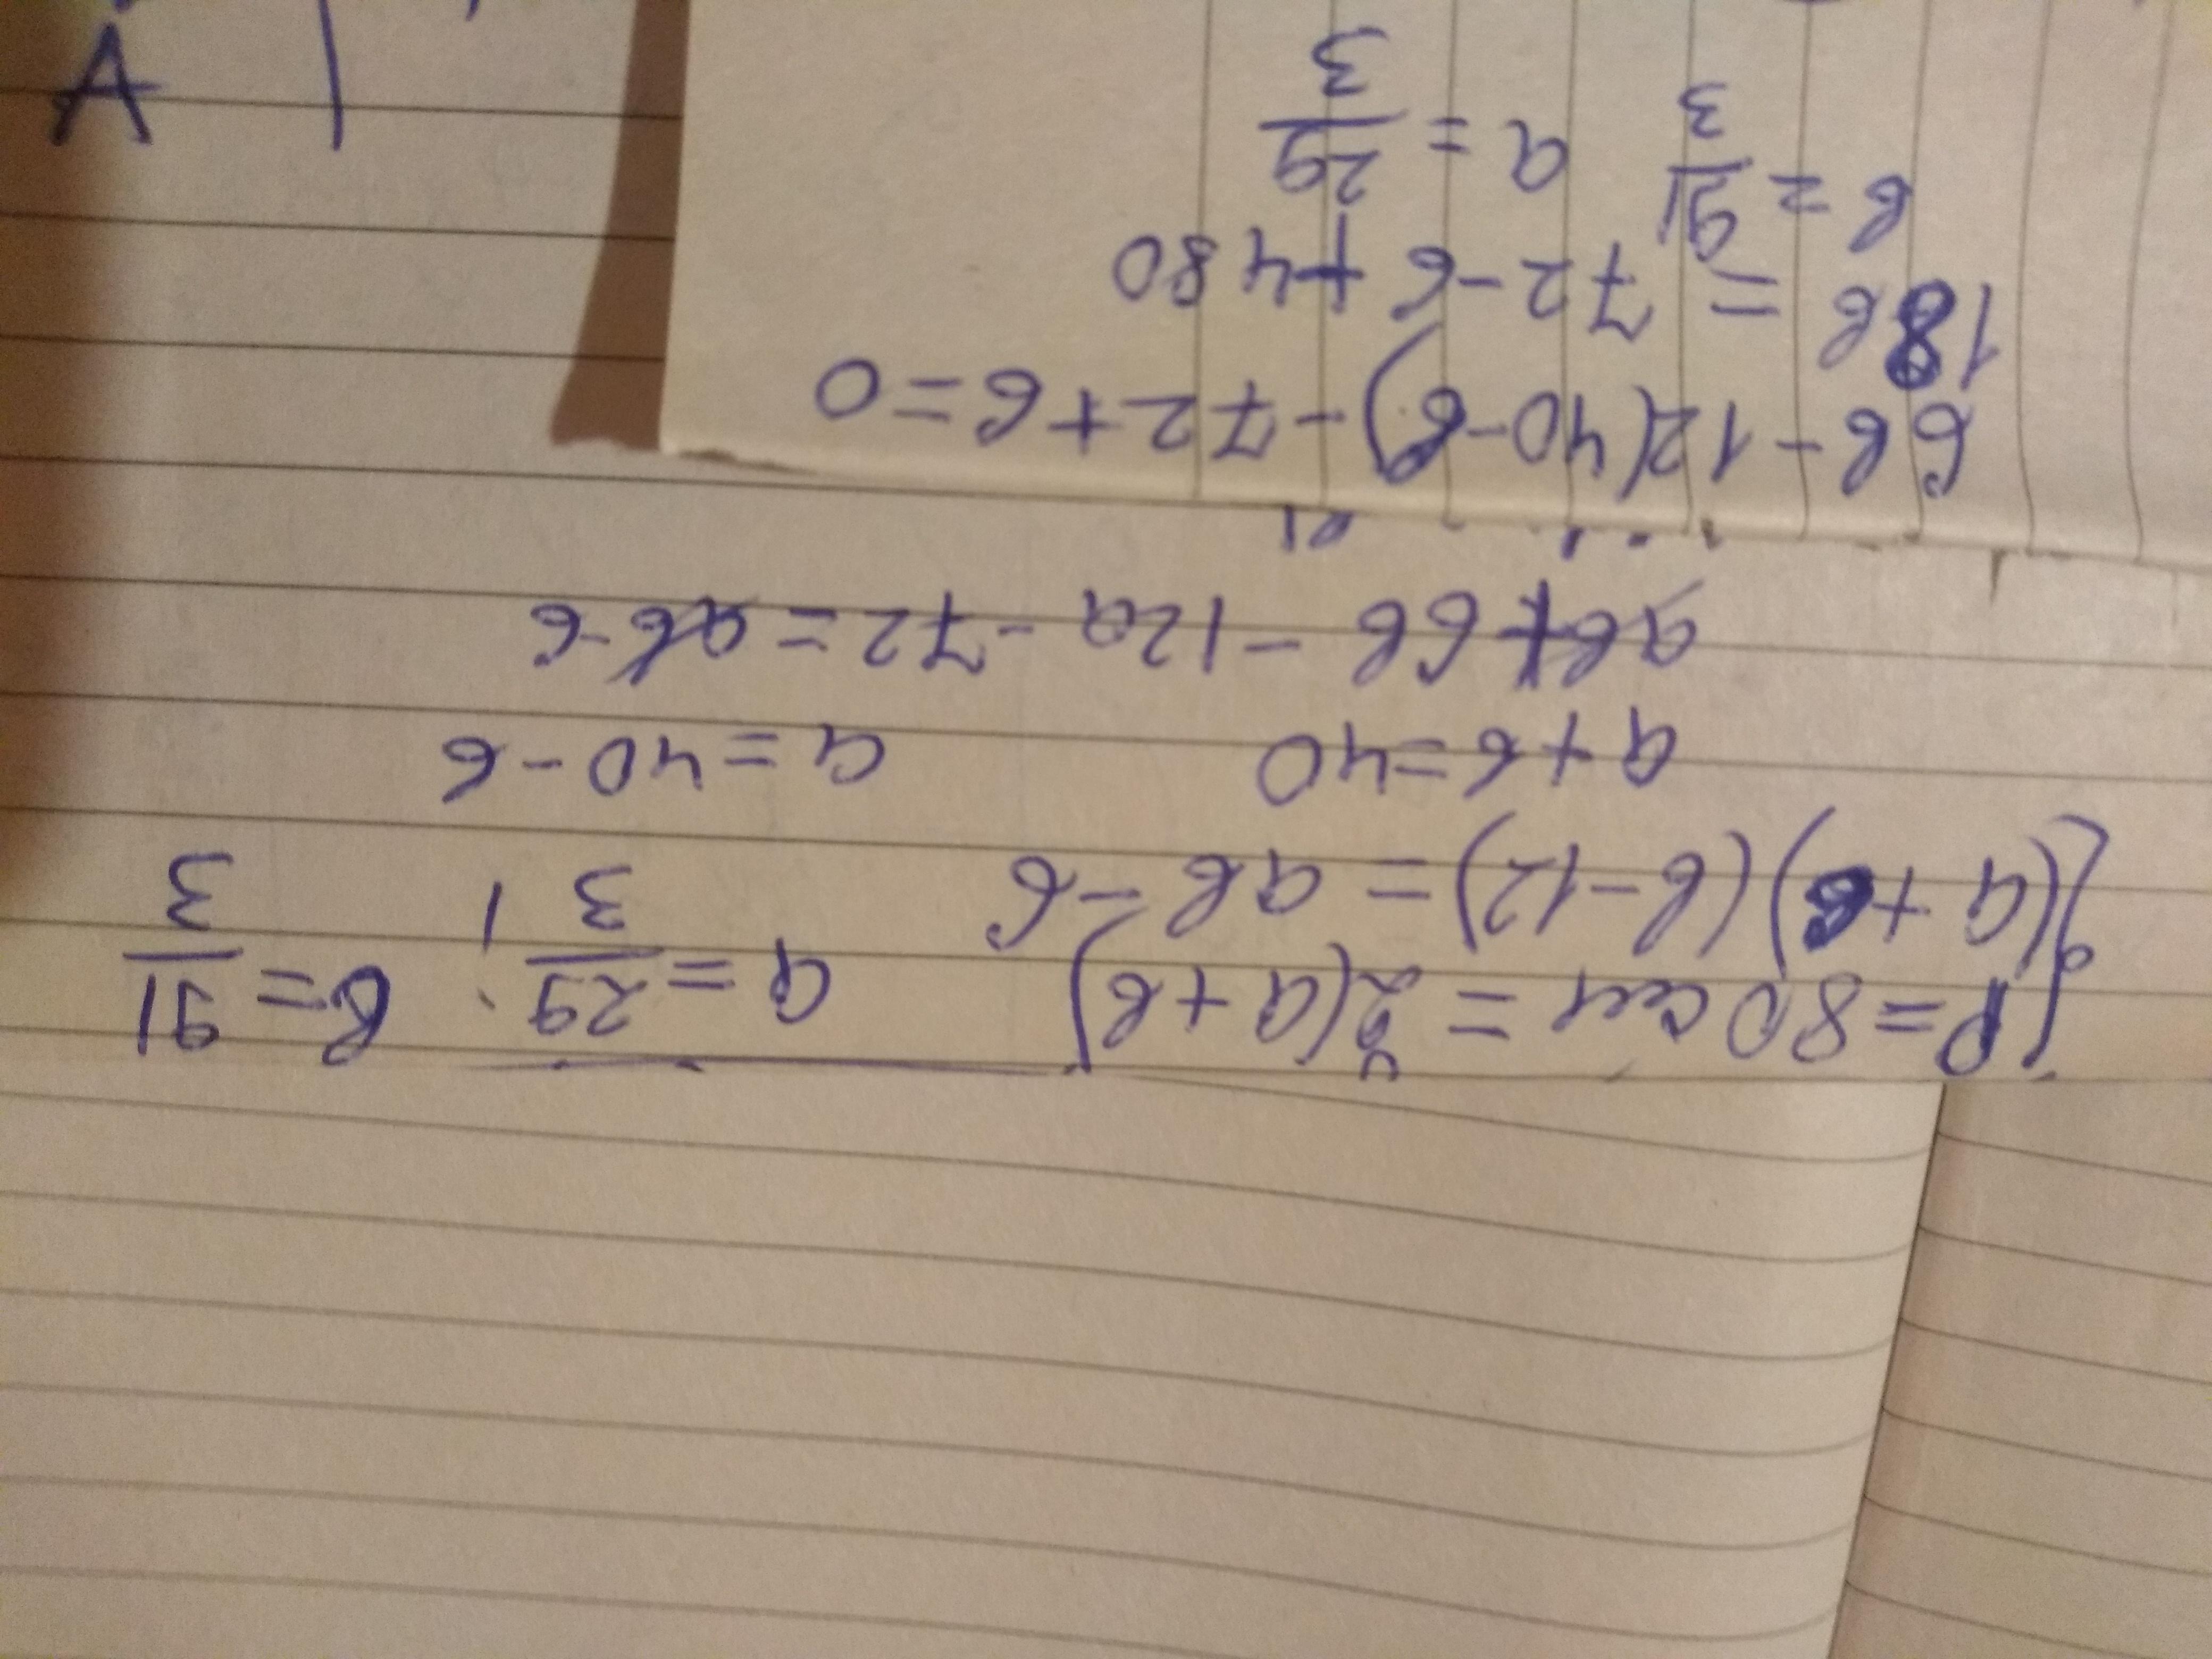 P=80см=2(a+b) a=29/3; b=91/3
(a+6)(b-12)=ab-6
a+b=40 a=40-b
ab+6b-12a-72=ab-6
6b-12(40-b)-72+6=0
18b=72-6+480
b=91/3 a=29/3